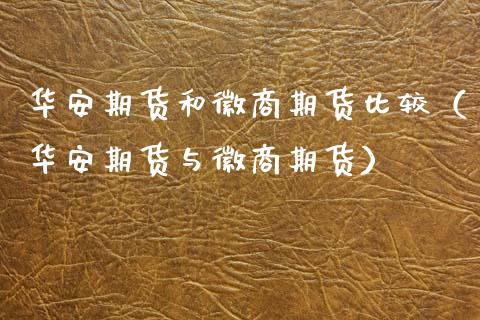 华安期货和徽商期货比较（
华安期货与徽商期货）